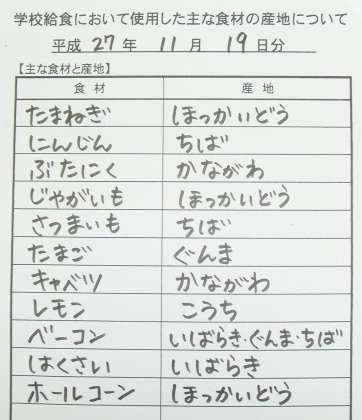 学校給食において使用した主な食材の産地について
平成 27 年 11 月 19 日分
【主な食材と産地】
食材 産地
たまねぎ ほっかいどう
にんじん ちば
ぶたにく かながわ
じゃがいも ほっかいどう
さつまいも ちば
たまご ぐんま
キャベツ かながわ
レモン こうち
ベーコン いばらき・ぐんま・ちば
はくさい いばらき
ホールコーン ほっかいどう